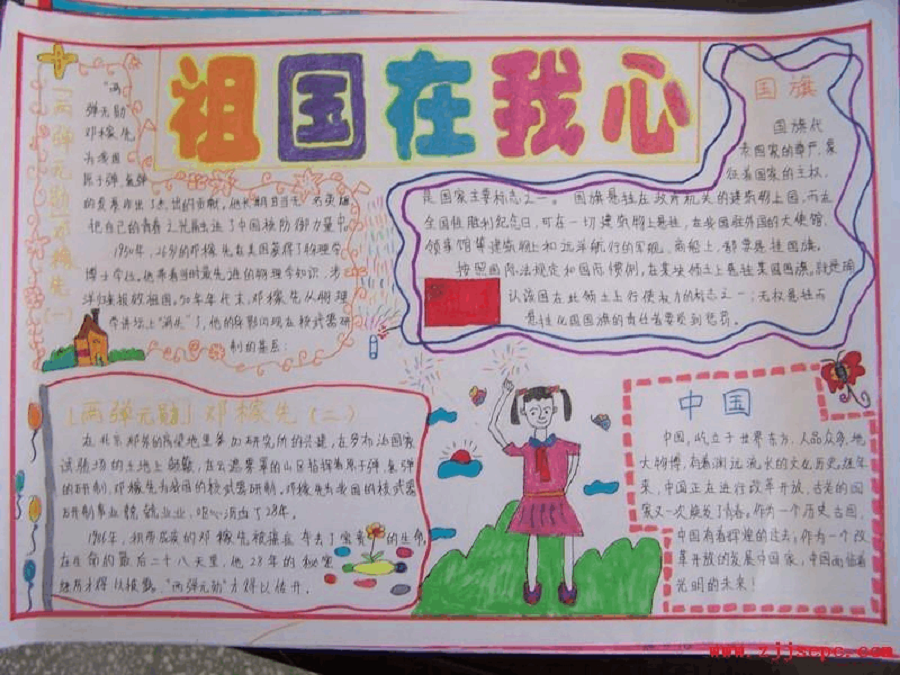 祖国在我心
「两弹元勋」邓稼先(一)
"两
弹元勋"
邓稼先
为我国
原子弹、氢弹
的发展作出了杰出的贡献,他长期甘当无名英雄
把自己的青春
1950年,26岁的邓稼先在美国获得了物理学
博士学位。他带着当时最先进的物理学知识,涉
洋归来报效祖国。50年年代末,邓稼先从物理
学讲坛上"消失"了,他的身影闪现在核武器研
制的基层:
国旗
国旗代
表国家的尊严,象
征着国家的主权,
是国家主要标志之一。国旗悬挂在政府机关的建筑物上
全国性胜利纪念日,可在一切建筑物上悬挂,在驻外国的大使馆、
领事馆等建筑物上和远洋航行的军舰、商船上,都要悬挂国旗。
按照国际法规定和国际惯例,在某块领土上悬挂某国国旗,就是
认该国在此领土上行使权力的标志之一;无权悬挂而
悬挂他国国旗的责任者要受到惩罚。
「两弹元勋」邓稼先(二)
在北京那
试验场的土地上
的研制,邓稼先为我国的核武器研制。邓稼先为我国的核武器
研制事业兢兢业业,呕心沥血了28年。
1986年,积劳成疾的邓稼先被癌症夺去了宝贵的生命,
在生命的最后二十八天里,他28年的秘密
经历才得以披露。"两弹元勋"才得以传开。
中国
中国,屹立于世界东方,人口众多,地
大物博,有着渊远流长的文化历史。近年
来,中国正在进行改革开放,古老的国
家又一次焕发了青春。作为一个历史古国,
中国有着辉煌的过去;作为一个改
革开放的发展中国家,中国面临着
光明的未来!
www.zjjscpc.com